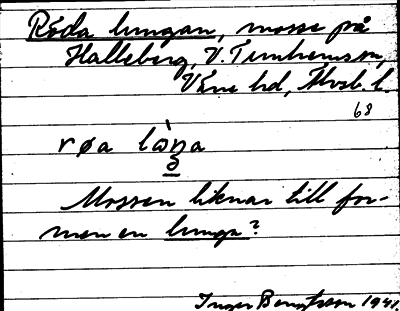 Röda lungan, mosse på
Halleberg, V. Tunhems sn,
Väne hd, Älvsb. l.
68
røa lⱺ̀ŋa
o
Mossen liknar till for-
men en lunga?
Inger Bengtsson 1941.